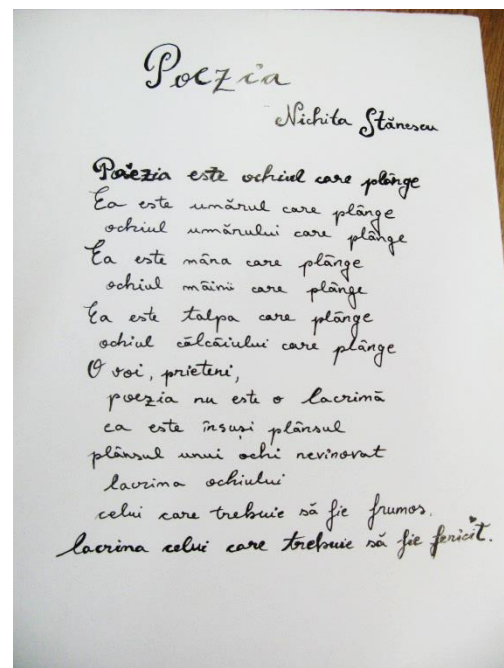 Poezia
Nichita Stănescu
Poezia este ochiul care plânge
Ea este umărul care plânge
ochiul umărului care plânge
Ea este mâna care plânge
ochiul mâinii care plânge
Ea este talpa care plânge
ochiul călcâiului care plânge
O voi, prieteni,
poezia nu este o lacrimă
ea este însuși plânsul
plânsul unui ochi nevinovat
lacrima ochiului
celui care trebuie să fie frumos.
lacrima celui care trebuie să fie fericit.